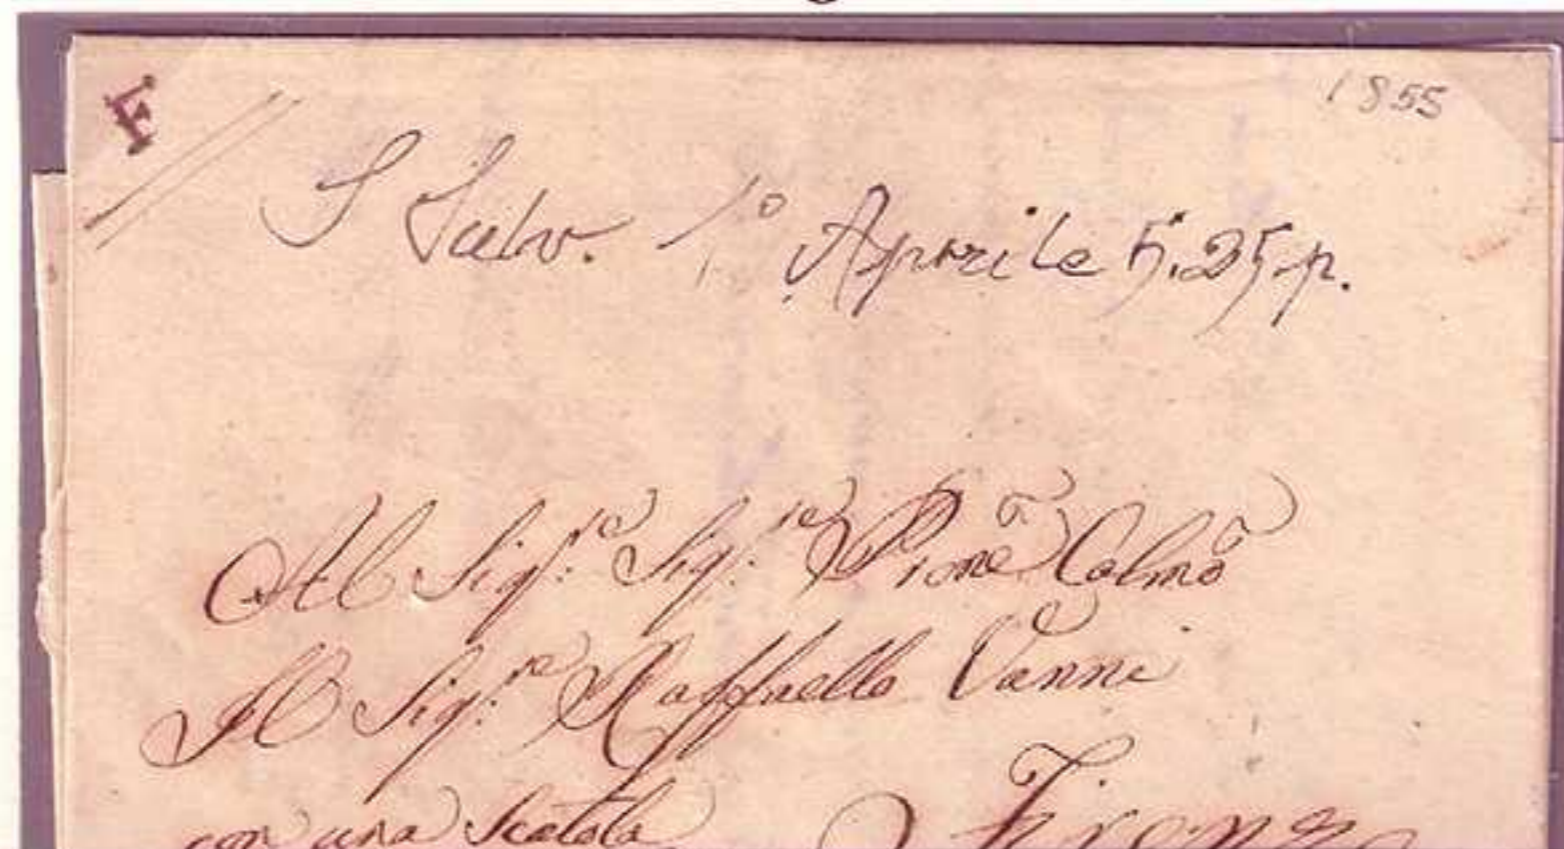 F
1855
S Salv. 1° Aprile 5.25 p.
Al Sig.re Sig.re Pione Colmo
Il Sig.re Raffaello Vanni
con una Scatola
Firenze